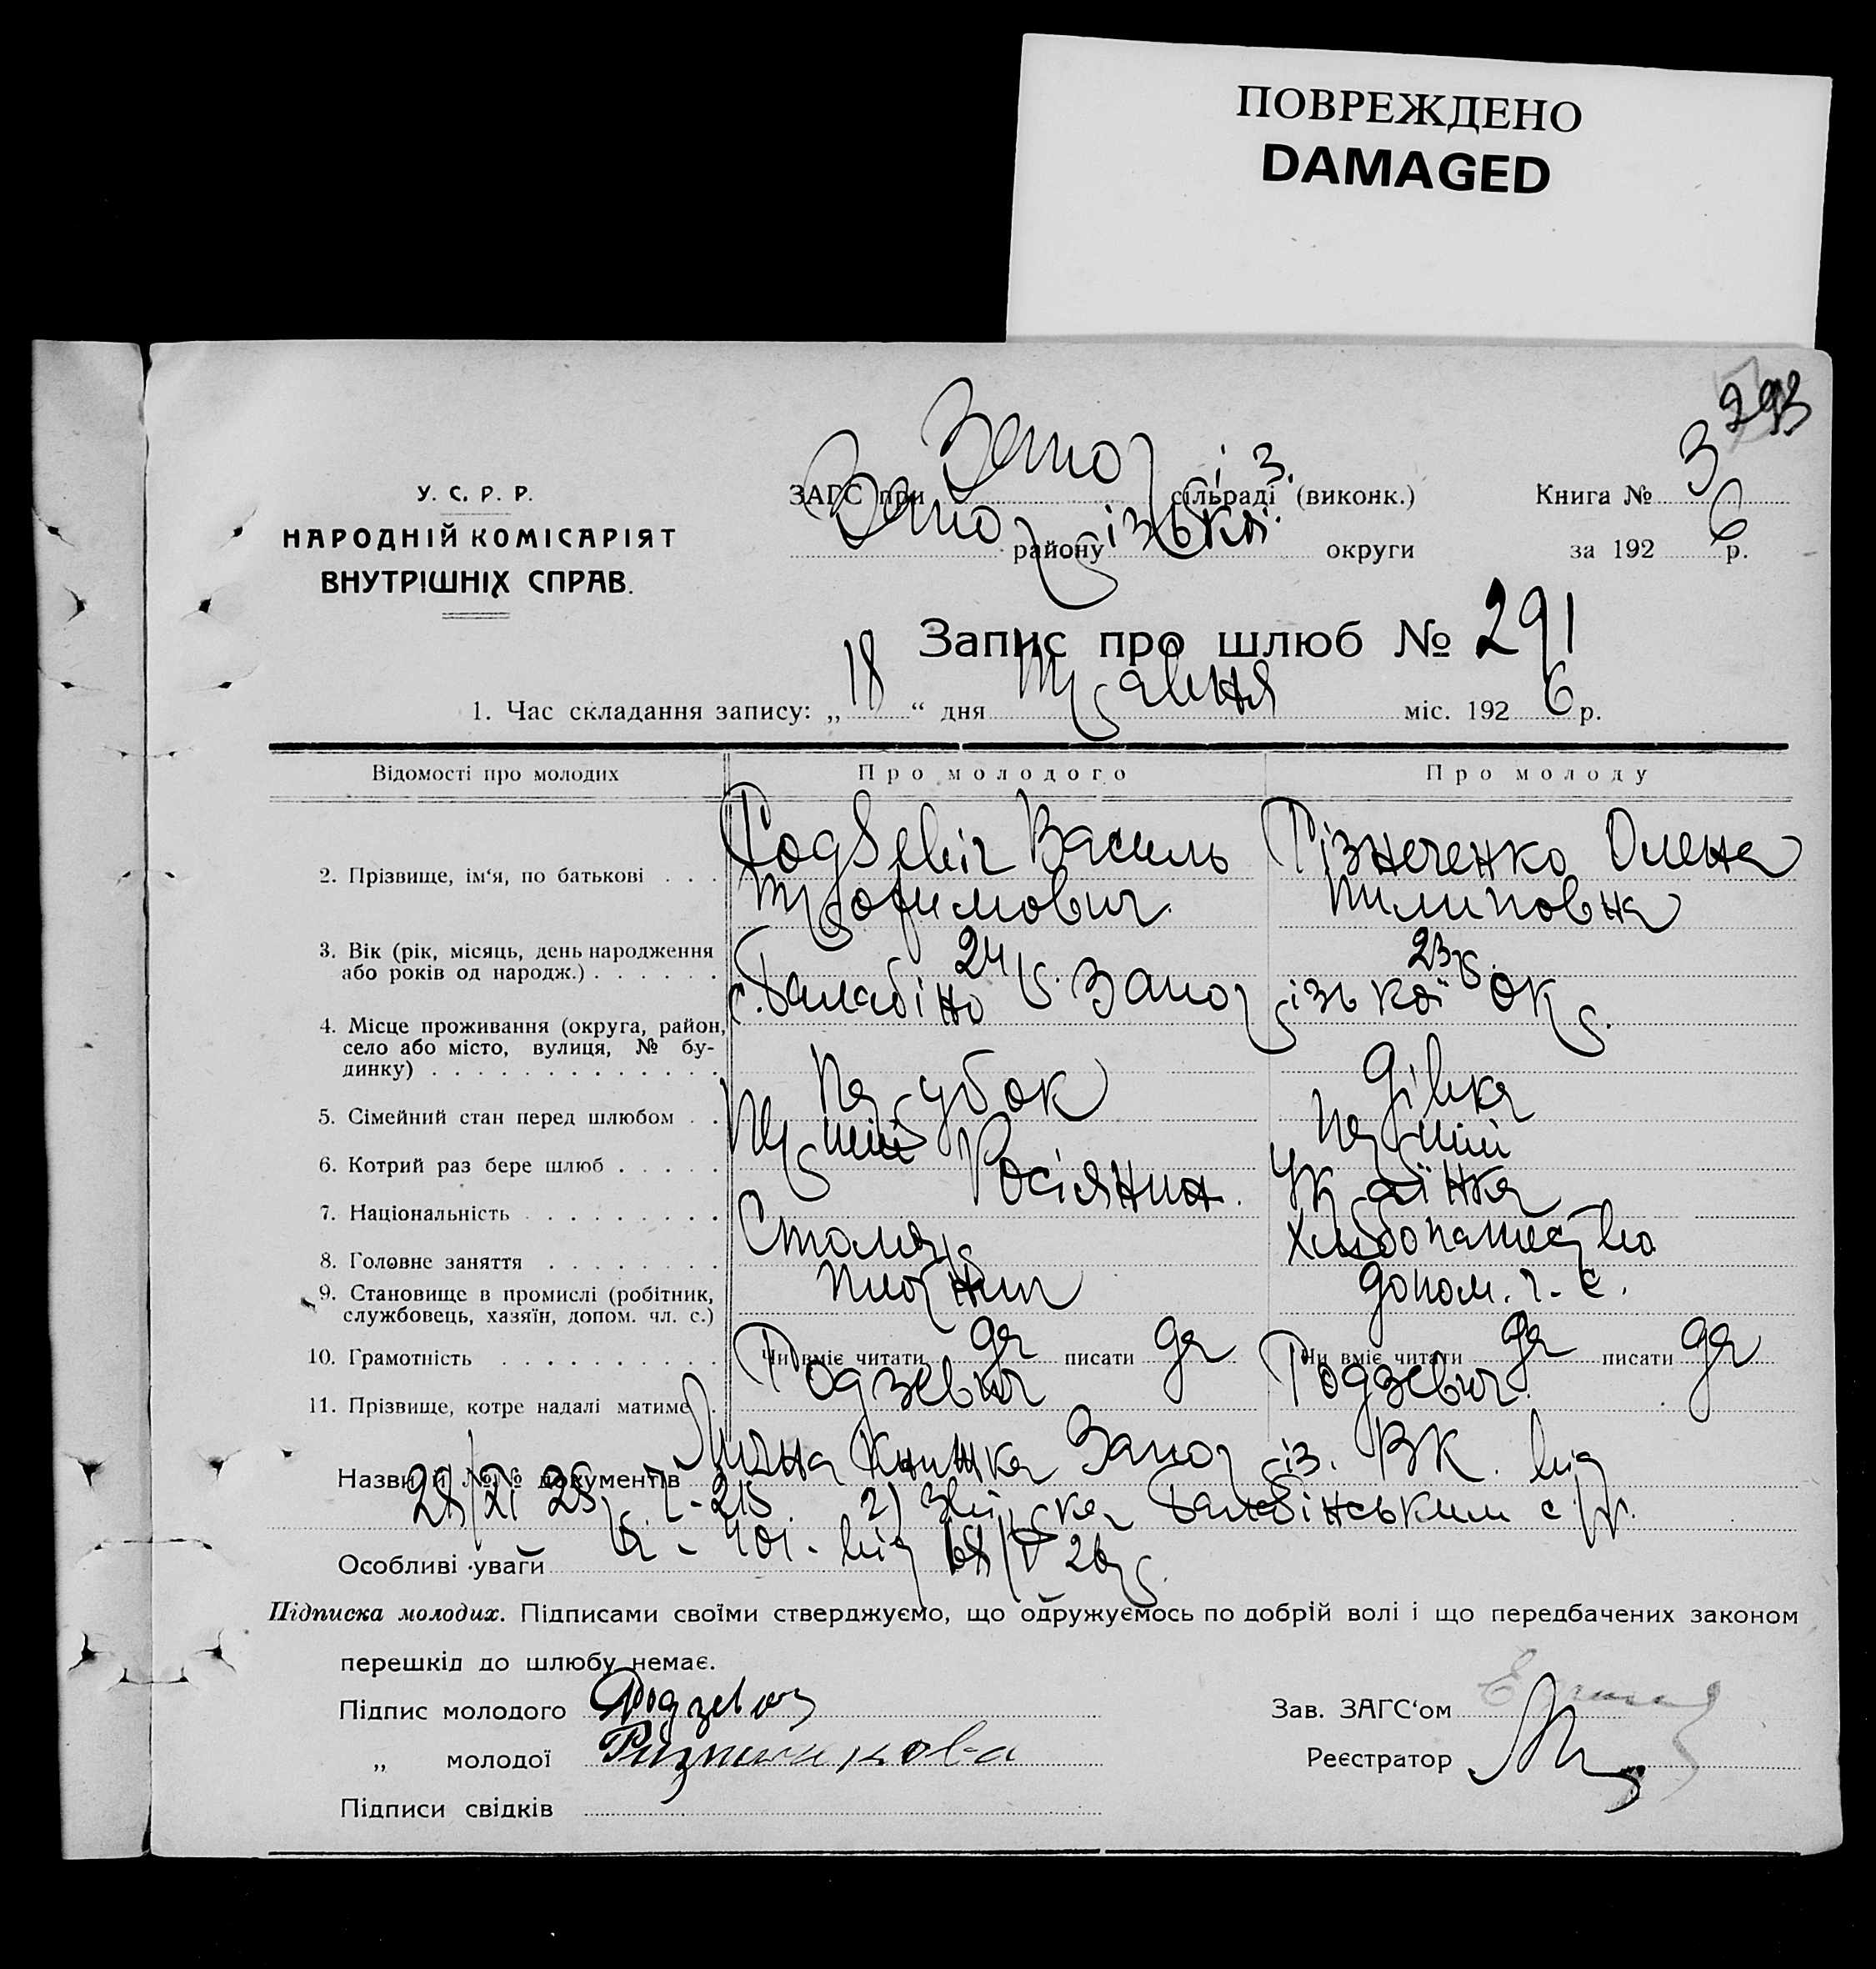 ПОВРЕЖДЕНО
DAMAGED
293
У. С. Р. Р.
НАРОДНІЙ КОМІСАРІЯТ
ВНУТРІШНІХ СПРАВ.
ЗАГС при Запоріз. сільраді (виконк.) Книга № 3
району Запорізької округи за 1926 р.
Запис про шлюб № 291
1. Час складання запису: „18“ дня травня міс. 1926 р.
Відомості про молодих Про молодого Про молоду
2. Прізвище, ім‘я, по батькові . . . Родзевіч Василь Трофимович. Різнеченко Олена Пилиповна
3. Вік (рік, місяць, день народження або років од народж.) . . . . . . 24 р. 23 р.
4. Місце проживання (округа, район, село або місто, вулиця, № будинку) . . . . . . . . . . . . . с. Балабіно Запорізької окр.
5. Сімейний стан перед шлюбом . . Парубок Дівка
6. Котрий раз бере шлюб . . . . . Перший Перший
7. Національність . . . . . . . . . Росіянин. Українка
8. Головне заняття . . . . . . . . Столяр Хлібопашество
9. Становище в промислі (робітник, службовець, хазяїн, допом. чл. с.) допом. ч. с.
10. Грамотність . . . . . . . . . . Чи вміє читати да писати да Чи вміє читати да писати да
11. Прізвище, котре надалі матиме . Родзевич Родзевич.
Назви й №№ документів Лична книжка Запоріз. ВК. від
28/XI 25 р. 2) Балабінським с/р.
401 - від 26 р.
Особливі уваги
Підписка молодих. Підписами своїми стверджуємо, що одружуємось по добрій волі і що передбачених законом
перешкід до шлюбу немає.
Підпис молодого Родзевич Зав. ЗАГС‘ом
„ молодої Ризниченкова Реєстратор
Підписи свідків